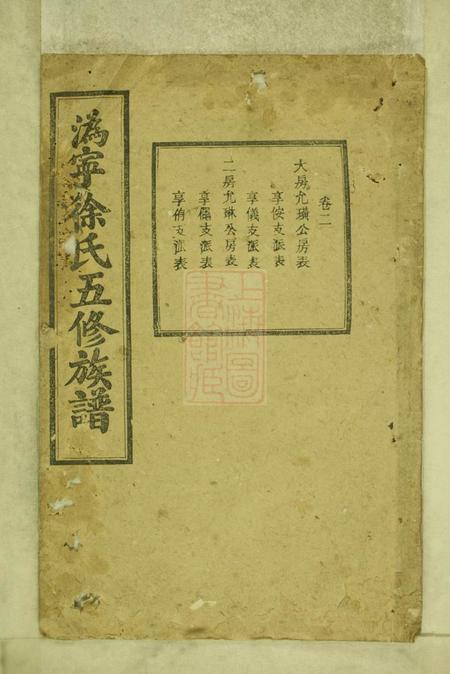 溈寧徐氏五修族譜
卷二
大房允璜公房表
享侒支派表
享儀支派表
二房允琳公房表
享儒支派表
享侑支派表
上海圖書館藏